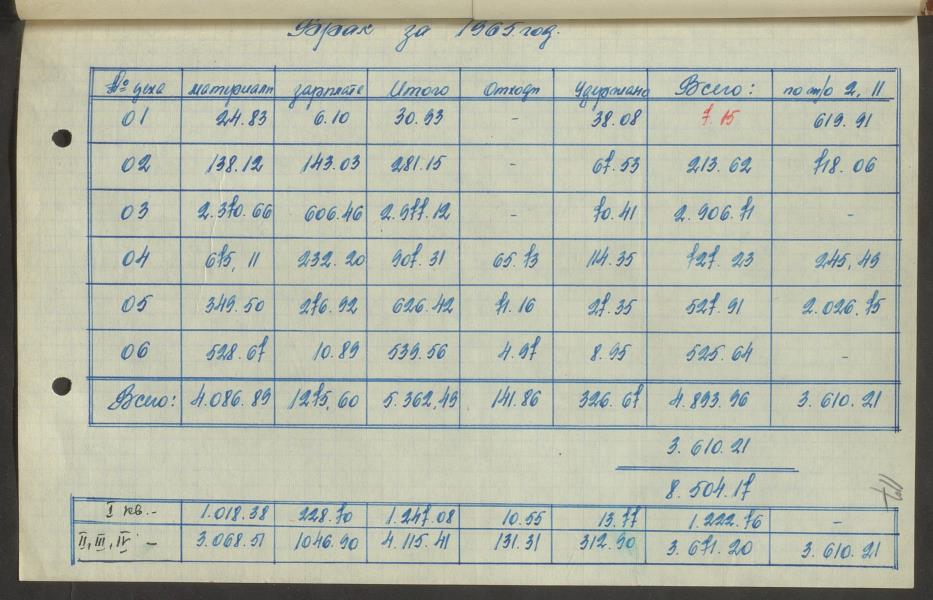 Брак за 1965 год.
№ цеха материалы зарплата Итого Отходы Удержано Всего: по ж/о 2, 11
01 24.83 6.10 30.93 - 38.08 7.15 619.91
02 138.12 143.03 281.15 - 67.53 213.62 718.06
03 2.370.66 606.46 2.977.12 - 70.41 2.906.71 -
04 675,11 232.20 907.31 65.73 114.35 727.23 245,49
05 349.50 276.92 626.42 71.16 27.35 527.91 2.026.75
06 528.67 10.89 539.56 4.97 8.95 525.64 -
Всего: 4.086.89 1275,60 5.362,49 141.86 326.67 4.893.96 3.610.21
3.610.21
8.504.17
I кв. - 1.018.38 228.70 1.247.08 10.55 13.77 1.222.76 -
II, III, IV - 3.068.51 1046.90 4.115.41 131.31 312.90 3.671.20 3.610.21